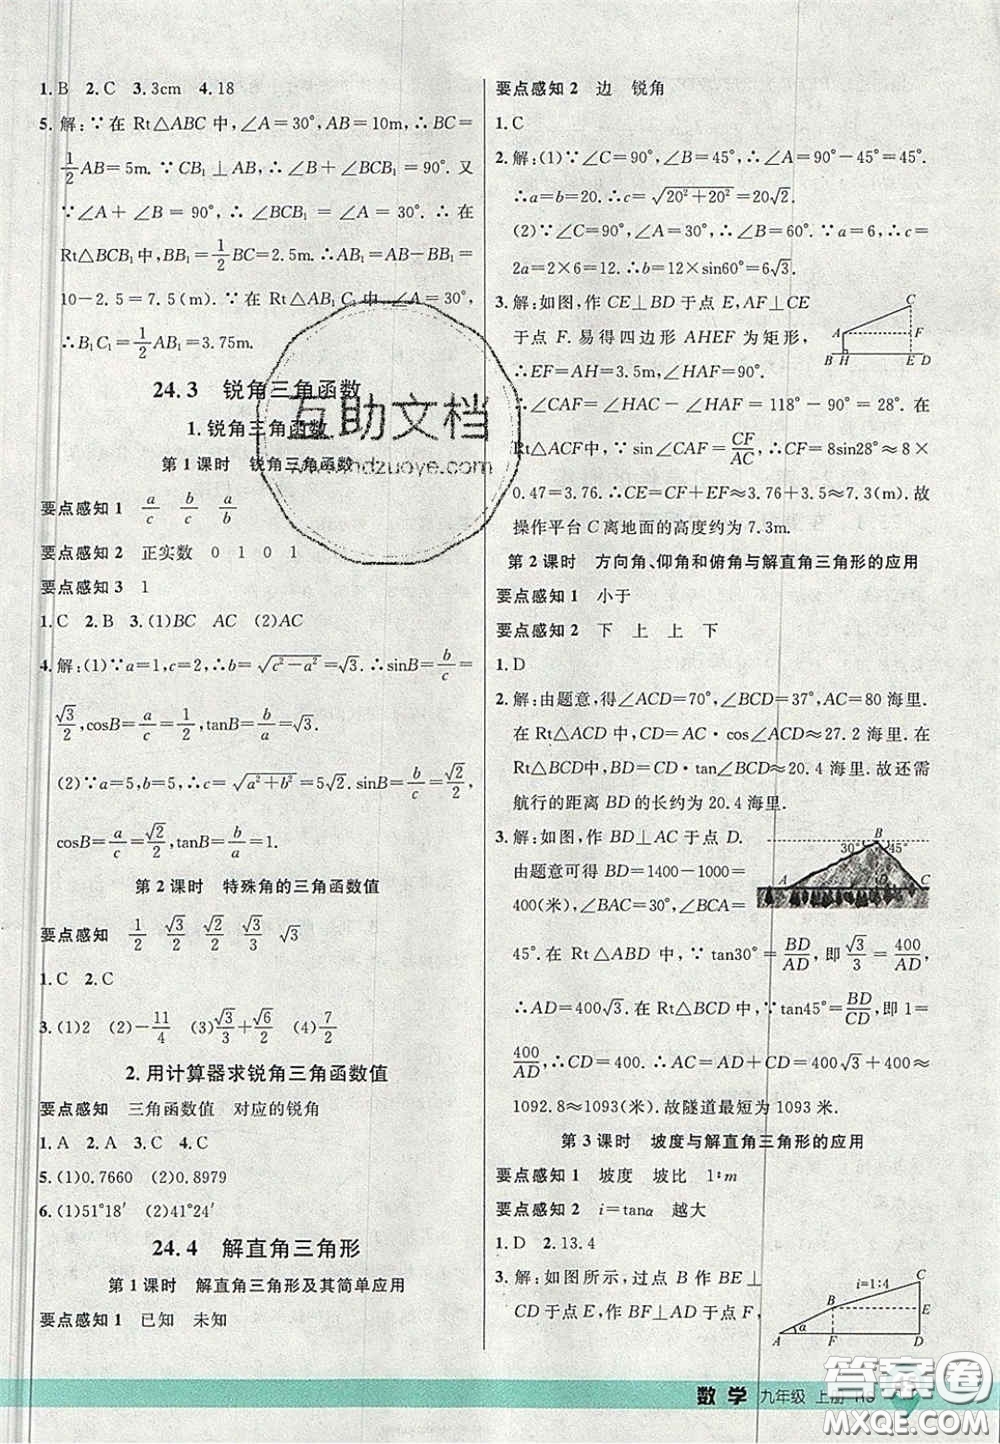 1.B 2.C 3.3cm 4.18
5.解:∵在Rt△ABC中,∠A=30°,AB=10m,∴BC=
1/2AB=5m.∵CB₁⊥AB,∴∠B+∠BCB₁=90°.又
∵∠A+∠B=90°,∴∠BCB₁=∠A=30°.∴在
Rt△BCB₁中,BB₁=1/2BC=2.5m.∴AB₁=AB-BB₁=
10-2.5=7.5(m).∵在Rt△AB₁C₁中,∠A=30°,
∴B₁C₁=1/2AB₁=3.75m.
24.3 锐角三角函数
1.锐角三角函数
第1课时 锐角三角函数
要点感知1 a/c b/c a/b
要点感知2 正实数 0 1 0 1
要点感知3 1
1.C 2.B 3.(1)BC AC (2)AC
4.解:(1)∵a=1,c=2,∴b=√(c²-a²)=√3.∴sinB=b/c=
√3/2,cosB=a/c=1/2,tanB=b/a=√3.
(2)∵a=5,b=5,∴c=√(a²+b²)=5√2.sinB=b/c=√2/2,
cosB=a/c=√2/2,tanB=b/a=1.
第2课时 特殊角的三角函数值
要点感知 1/2 √3/2 √2/2 √3/3 √3
1.C 2.C
3.(1)2 (2)-11/4 (3)√3/3+√6/2 (4)7/2
2.用计算器求锐角三角函数值
要点感知 三角函数值 对应的锐角
1.A 2.A 3.C 4.C
5.(1)0.7660 (2)0.8979
6.(1)51°18′ (2)41°24′
24.4 解直角三角形
第1课时 解直角三角形及其简单应用
要点感知1 已知 未知
要点感知2 边 锐角
1.C
2.解:(1)∵∠C=90°,∠B=45°,∴∠A=90°-45°=45°.
∴a=b=20.∴c=√(20²+20²)=20√2.
(2)∵∠C=90°,∠A=30°,∴∠B=60°.∵a=6,∴c=
2a=2×6=12.∴b=12×sin60°=6√3.
3.解:如图,作CE⊥BD于点E,AF⊥CE
于点F.易得四边形AHEF为矩形,
∴EF=AH=3.5米,∠HAF=90°.
∴∠CAF=∠HAC-∠HAF=118°-90°=28°.在
Rt△ACF中,∵sin∠CAF=CF/AC,∴CF=8sin28°≈8×
0.47=3.76.∴CE=CF+EF≈3.76+3.5≈7.3(米).故
操作平台C离地面的高度约为7.3m.
C
A F
B H E D
第2课时 方向角、仰角和俯角与解直角三角形的应用
要点感知1 小于
要点感知2 下 上 上 下
1.D
2.解:由题意,得∠ACD=70°,∠BCD=37°,AC=80海里.
在Rt△ACD中,CD=AC·cos∠ACD≈27.2海里.在
Rt△BCD中,BD=CD·tan∠BCD≈20.4海里.故还需
航行的距离BD的长约为20.4海里.
3.解:如图,作BD⊥AC于点D.
由题意可得BD=1400-1000=
400(米),∠BAC=30°,∠BCA=
45°.在Rt△ABD中,∵tan30°=BD/AD,即√3/3=400/AD,
∴AD=400√3.在Rt△BCD中,∵tan45°=BD/CD,即1=
400/AD,∴CD=400.∴AC=AD+CD=400√3+400≈
1092.8≈1093(米).故隧道最短为1093米.
B
30° 45°
A D C
第3课时 坡度与解直角三角形的应用
要点感知1 坡度 坡比 1∶m
要点感知2 i=tanα 越大
1.D 2.13.4
3.解:如图所示,过点B作BE⊥
CD于点E,作BF⊥AD于点F,
i=1:4 C
B E
α
A F D
互助文档
数学 九年级 上册
答案圈
MXQE.COM